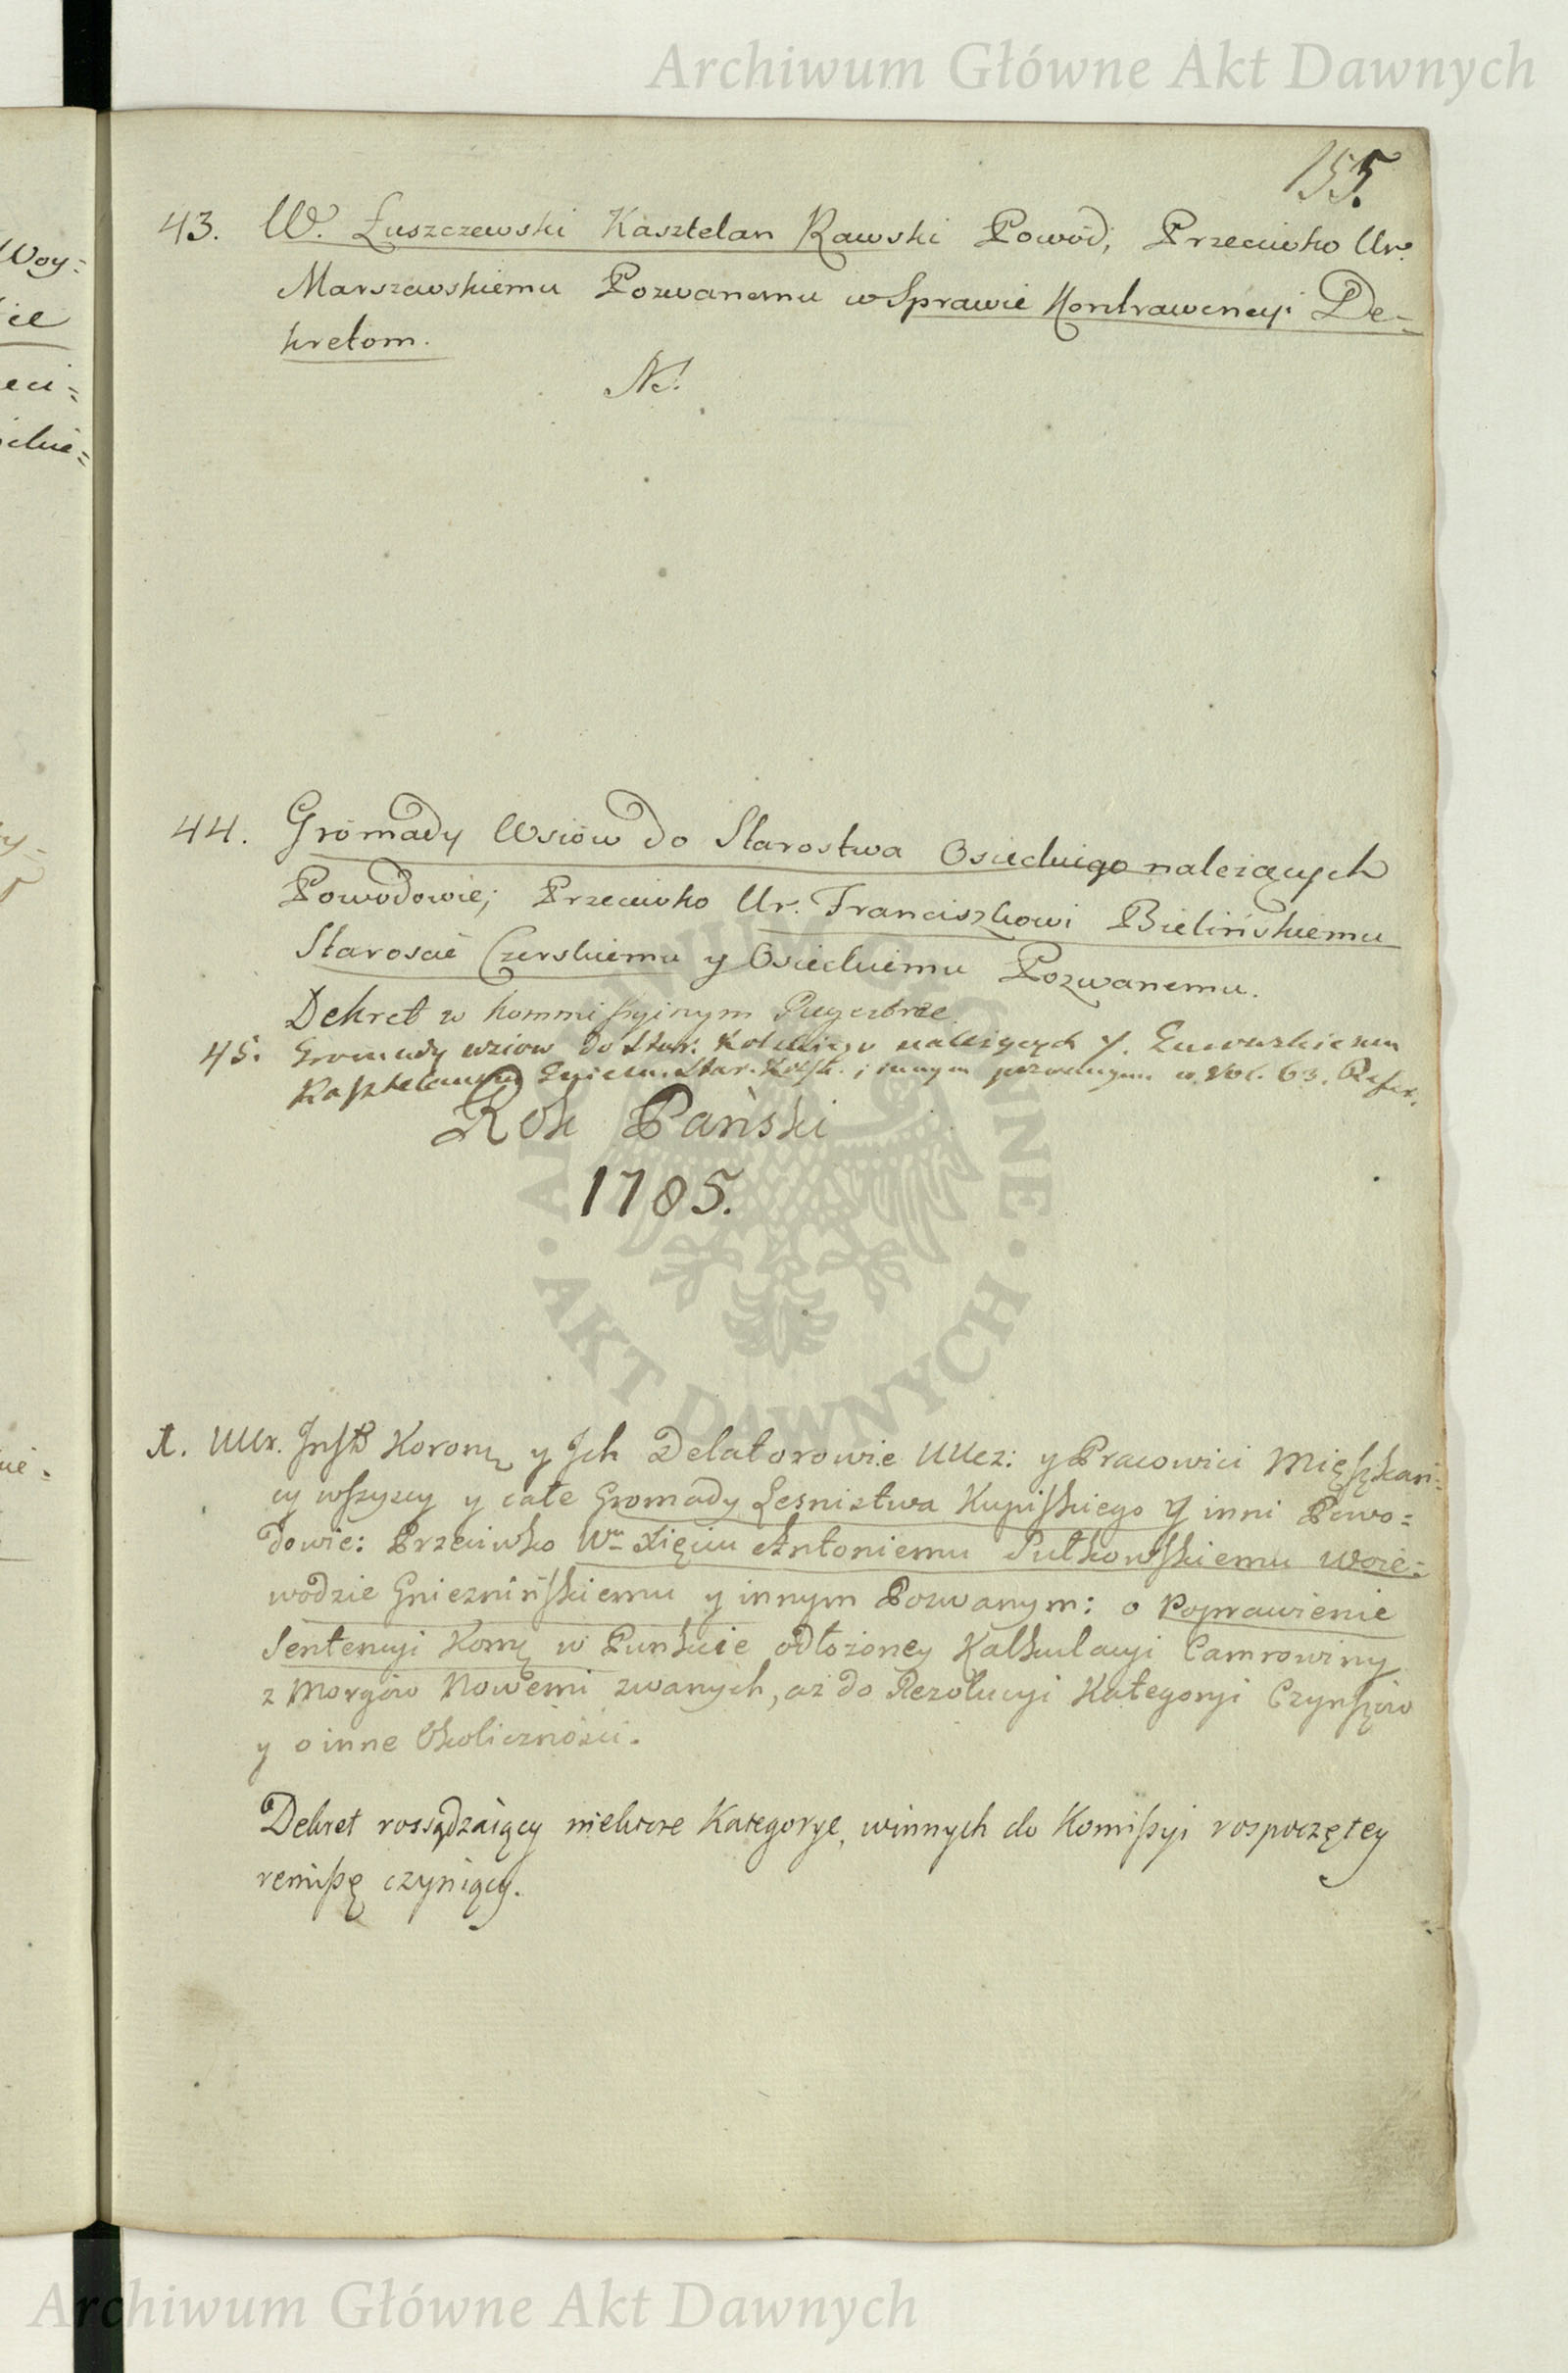 Archiwum Główne Akt Dawnych
155.
43. W. Łuszczewski Kasztelan Rawski Powód, Przeciwko Ur.
Marszewskiemu Pozwanemu w Sprawie Kontrawencyi De-
kretom.
44. Gromady Wsiów do Starostwa Osieckiego należących
Powodowie; Przeciwko Ur. Franciszkowi Bielińskiemu
Staroście Czerskiemu y Osieckiemu Pozwanemu.
Dekret w Kommissyinym Regestrze.
45. Gromady wsiow do Star. należących
i innym pozwanym w Vol. 63. Refer.
Rok Pański
1785.
1. UUr. Inst Korony y Ich Delatorowie UUcz: y Pracowici Mięszkań-
cy wszyscy y całe Gromady Lesnictwa Kupiskiego y inni Powo=
dowie: Przeciwko Wu Xięciu Antoniemu Sułkowskiemu Woie-
wodzie Gnieznińskiemu y innym Pozwanym: o Poprawienie
Sentencyi w Punkcie odłożoney Kalkulacyi
z Morgów Nowemi zwanych, aż do Rezolucyi Kategoryi Czynszów
y o inne Okoliczności.
Dekret rossądzaiący niektore Kategorye, w innych do Komissyi rospoczętey
remissę czyniący.
Woy=
cie
eci=
ckie=
ARCHIWUM GŁÓWNE AKT DAWNYCH
Archiwum Główne Akt Dawnych